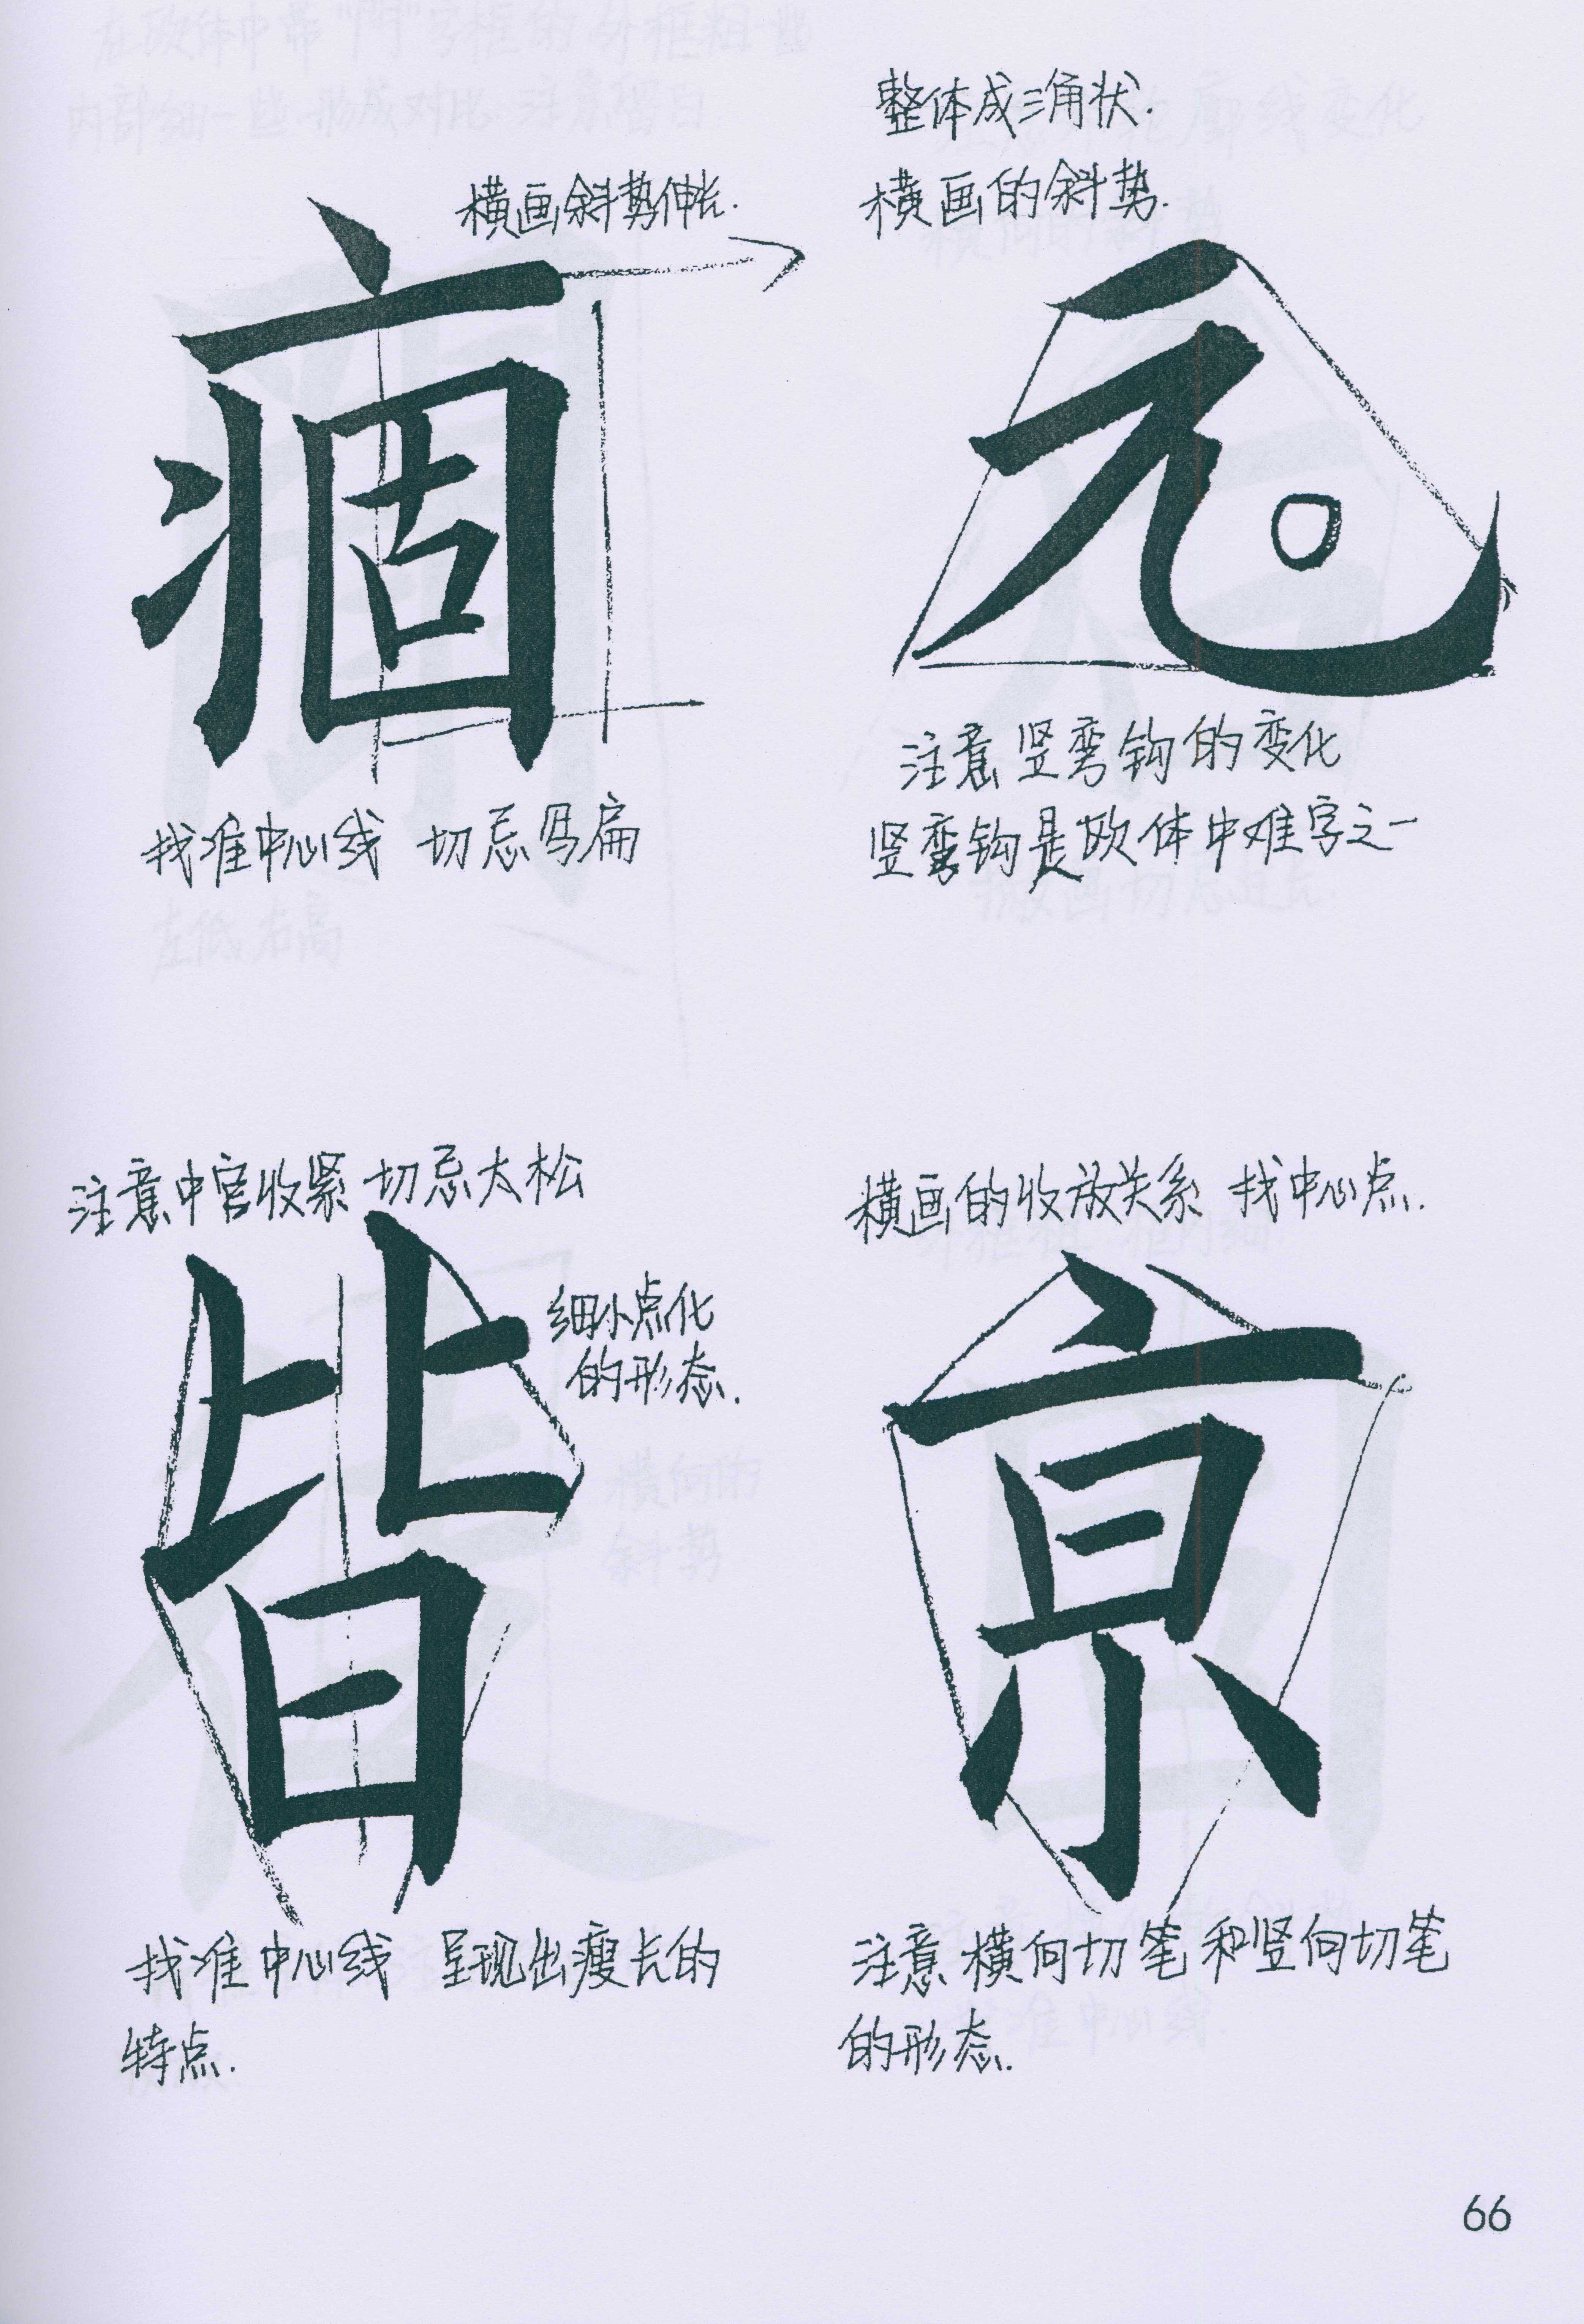 整体成三角状.
横画斜势伸长.
横画的斜势.
痼
元
注意竖弯钩的变化
找准中心线 切忌写扁
竖弯钩是欧体中难字之一
注意中宫收紧 切忌太松
横画的收放关系 找中心点.
皆
细小点化
的形态.
京
找准中心线 呈现出瘦长的
特点.
注意横向切笔和竖向切笔
的形态.
66